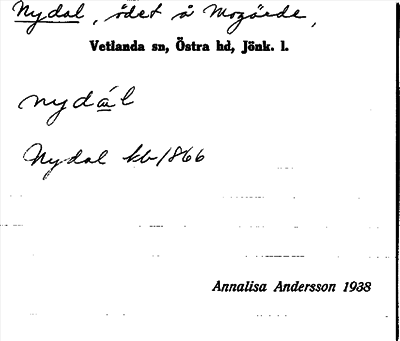 Nydal, ödet å Mogärde,
Vetlanda sn, Östra hd, Jönk. l.
nydál
Nydal kb 1866
Annalisa Andersson 1938